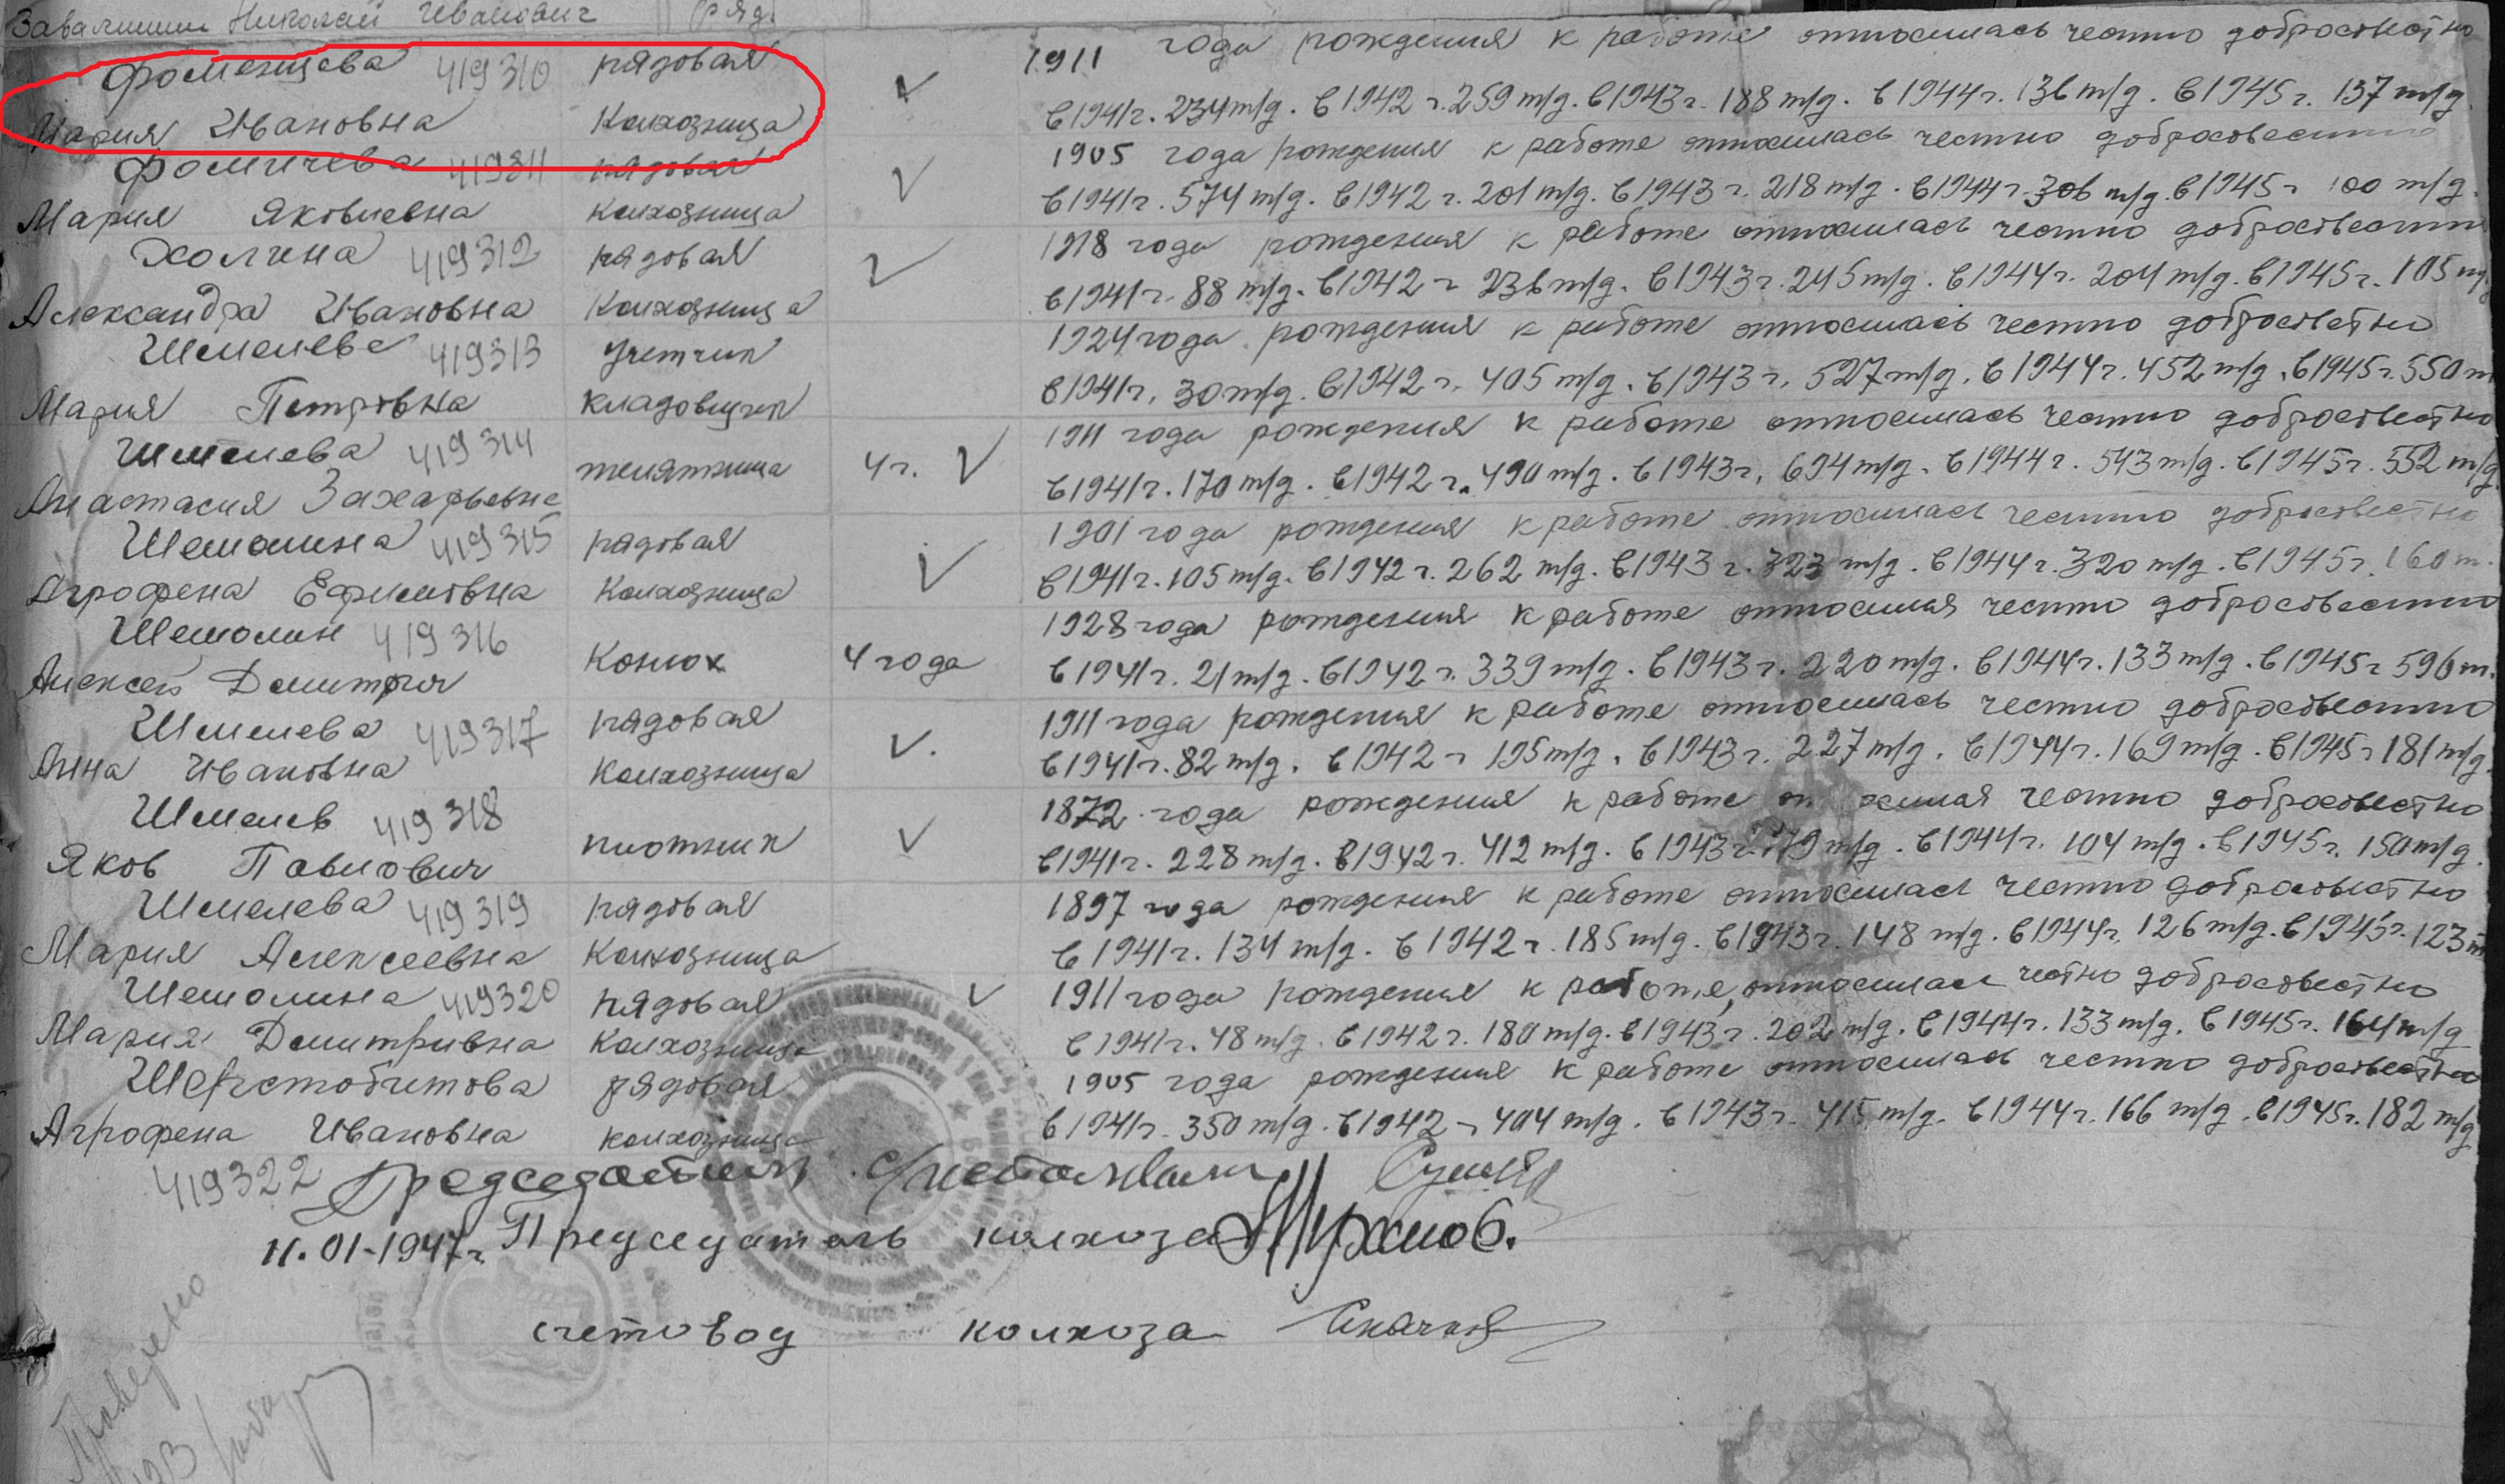 Завалишин Николай Иванович ряд.
Фоменцева 419310 рядовая 1911 года рождения к работе относилась честно добросовестно
Мария Ивановна колхозница в 1941 г. 234 т/д. в 1942 г. 259 т/д. в 1943 г. 188 т/д. в 1944 г. 136 т/д. в 1945 г. 137 т/д.
Фомичева 419311 рядовая 1905 года рождения к работе относилась честно добросовестно
Мария Яковлевна колхозница в 1941 г. 574 т/д. в 1942 г. 201 т/д. в 1943 г. 218 т/д. в 1944 г. 306 т/д. в 1945 г. 100 т/д.
Холина 419312 рядовая 1918 года рождения к работе относилась честно добросовестно
Александра Ивановна колхозница в 1941 г. 88 т/д. в 1942 г. 236 т/д. в 1943 г. 245 т/д. в 1944 г. 204 т/д. в 1945 г. 105 т/д
Шмелева 419313 учетчик 1924 года рождения к работе относилась честно добросовестно
Мария Петровна кладовщик в 1941 г. 30 т/д. в 1942 г. 405 т/д. в 1943 г. 527 т/д. в 1944 г. 452 т/д. в 1945 г. 550 т
Шмелева 419314 телятница 4 г. 1911 года рождения к работе относилась честно добросовестно
Анастасия Захарьевна в 1941 г. 170 т/д. в 1942 г. 490 т/д. в 1943 г. 694 т/д. в 1944 г. 543 т/д. в 1945 г. 552 т/д.
Шемолина 419315 рядовая 1901 года рождения к работе относилась честно добросовестно
Агрофена Ефимовна колхозница в 1941 г. 105 т/д. в 1942 г. 262 т/д. в 1943 г. 323 т/д. в 1944 г. 320 т/д. в 1945 г. 160 т.
Шемолин 419316 конюх 4 года 1928 года рождения к работе относился честно добросовестно
Алексей Дмитрич в 1941 г. 21 т/д. в 1942 г. 339 т/д. в 1943 г. 220 т/д. в 1944 г. 133 т/д. в 1945 г 596 т.
Шмелева 419317 рядовая 1911 года рождения к работе относилась честно добросовестно
Анна Ивановна колхозница в 1941 г. 82 т/д. в 1942 г 195 т/д. в 1943 г. 227 т/д. в 1944 г. 169 т/д. в 1945 г 181 т/д.
Шмелев 419318 плотник 1872 года рождения к работе честно добросовестно
Яков Павлович в 1941 г. 228 т/д. в 1942 г. 412 т/д. в 1943 г. т/д. в 1944 г. 104 т/д. в 1945 г. 150 т/д.
Шмелева 419319 рядовая 1897 года рождения к работе относилась честно добросовестно
Мария Алексеевна колхозница в 1941 г. 134 т/д. в 1942 г. 185 т/д. в 1943 г. 148 т/д. в 1944 г. 126 т/д. в 1945 г. 123 т
Шемолина 419320 рядовая 1911 года рождения к работе, относилась честно добросовестно
Мария Дмитривна колхозница в 1941 г. 48 т/д. в 1942 г. 180 т/д. в 1943 г. 202 т/д. в 1944 г. 133 т/д. в 1945 г. 164 т/д
Шерстобитова рядовая 1905 года рождения к работе относилась честно добросовестно
Агрофена Ивановна колхозница в 1941 г. 350 т/д. в 1942 г 404 т/д. в 1943 г. 415 т/д. в 1944 г. 166 т/д. в 1945 г. 182 т/д
419322 Председатель
11.01-1947 г. Председатель колхоза
счетовод колхоза
Проверено